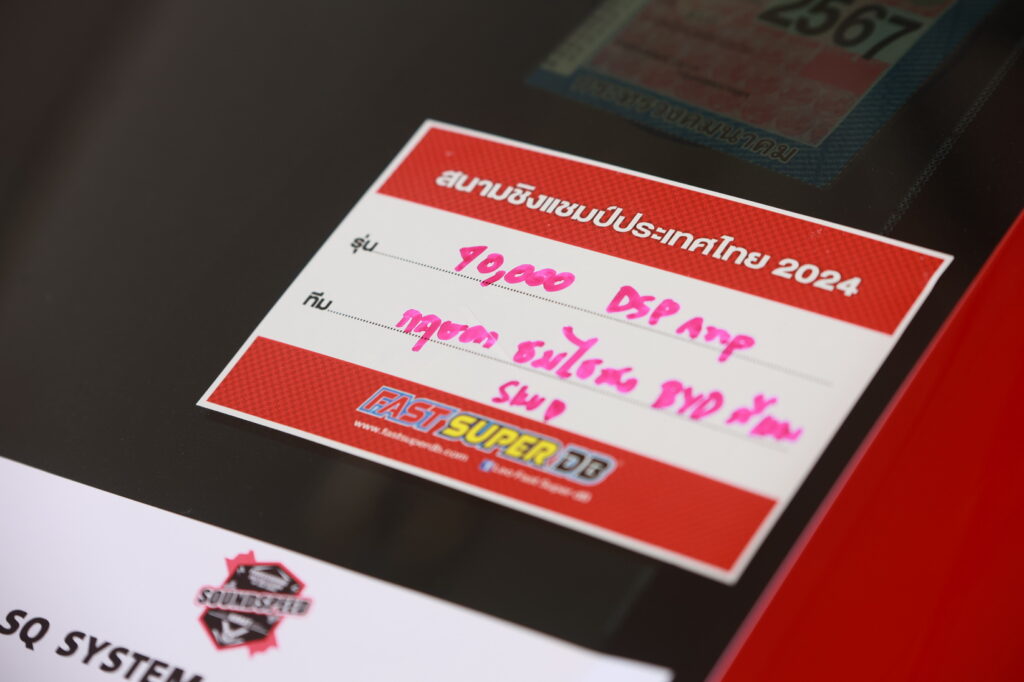 2567
กระทรวงคมนาคม
สนามชิงแชมป์ประเทศไทย 2024
รุ่น 40,000 DSP Amp
ทีม BYD
SWP
FAST SUPER DB
www.fastsuperdb.com Loo Fast Super dB
SOUNDSPEED
SQ SYSTEM